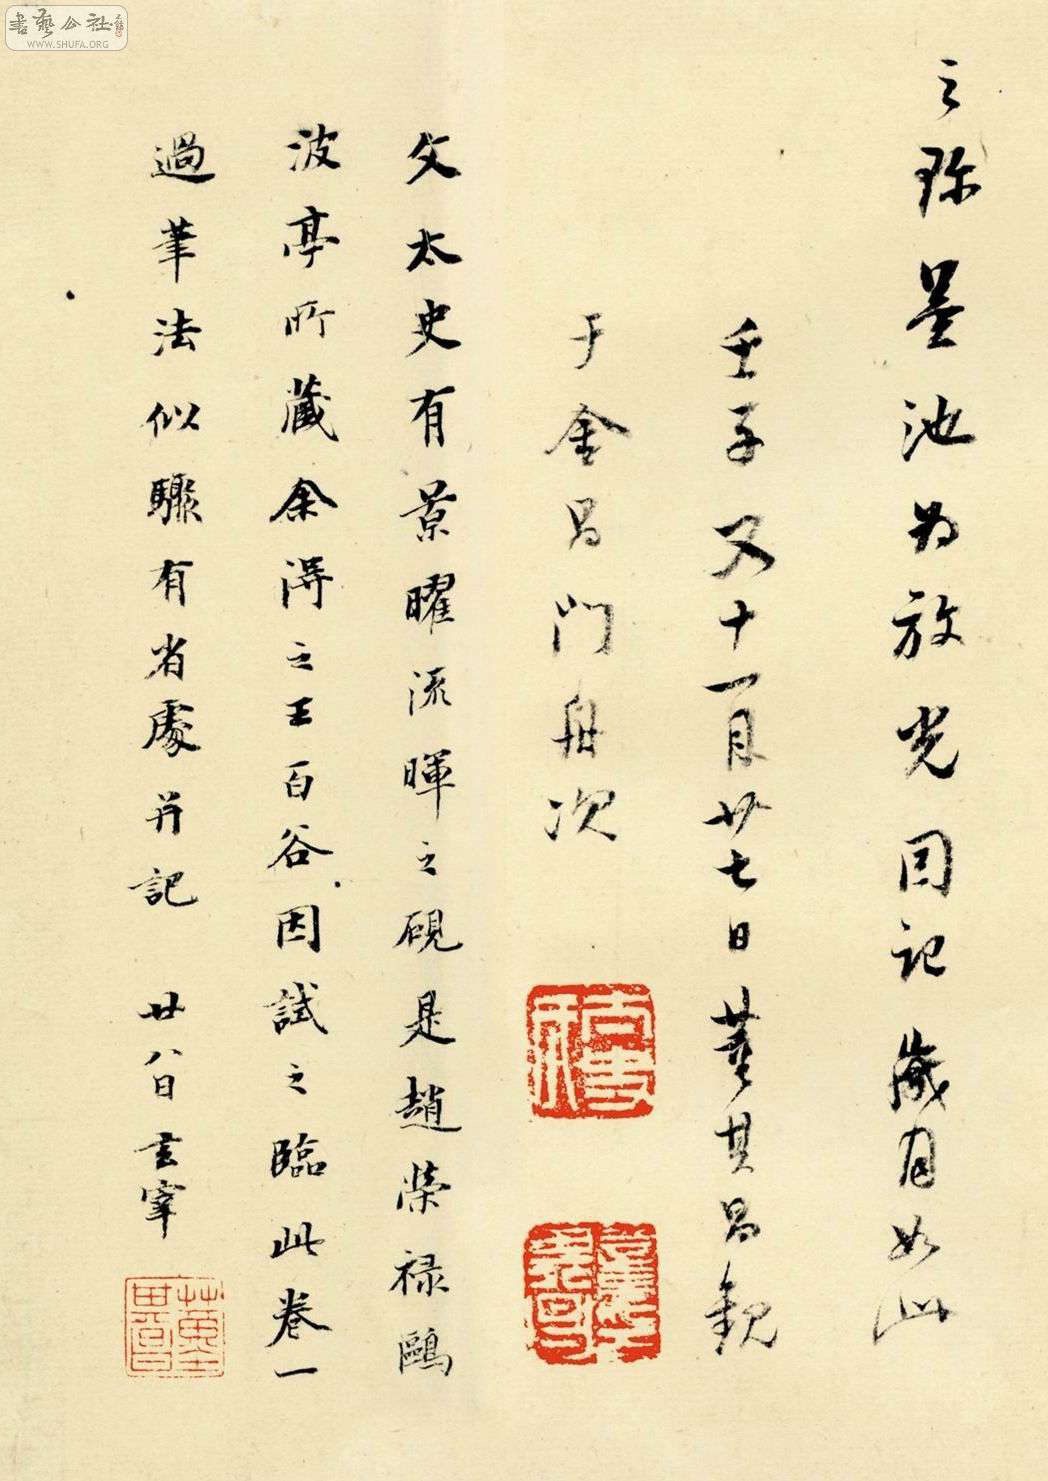 之珎墨池为放光因記歲月如此
壬子又十一月廿七日董其昌觀
于金昌門舟次
文太史有景曜流暉之硯是趙榮祿鷗
波亭所藏余得之王百谷因試之臨此卷一
過筆法似驟有省處并記 廿八日 玄宰
書藝公社
WWW.SHUFA.ORG